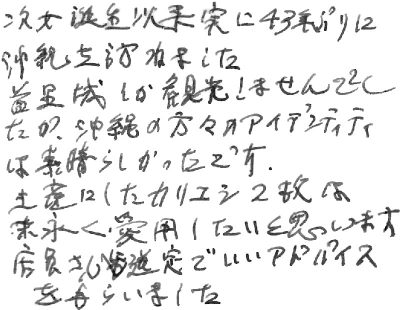 次女誕生以来実に43年ぶりに
沖縄を訪ねました
首里城しか観光しませんでし
たが、沖縄の方々のアイデンティティ
は素晴らしかったです.
土産にしたカリユシ2枚は
末永く愛用したいと思います
店員さんも選定でいいアドバイス
をもらいました